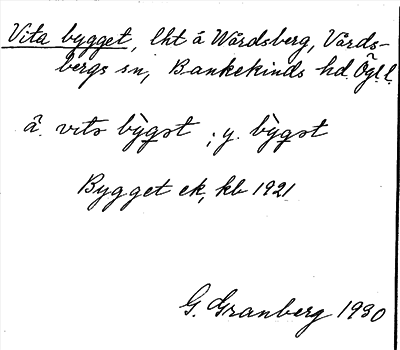 Vita bygget, lht å Wårdsberg, Vårds-
bergs sn, Bankekinds hd. Ögl. l.
ä. vitɵ bỳgət ; y. bỳgət
Bygget ek, kb 1921
G. Granberg 1930